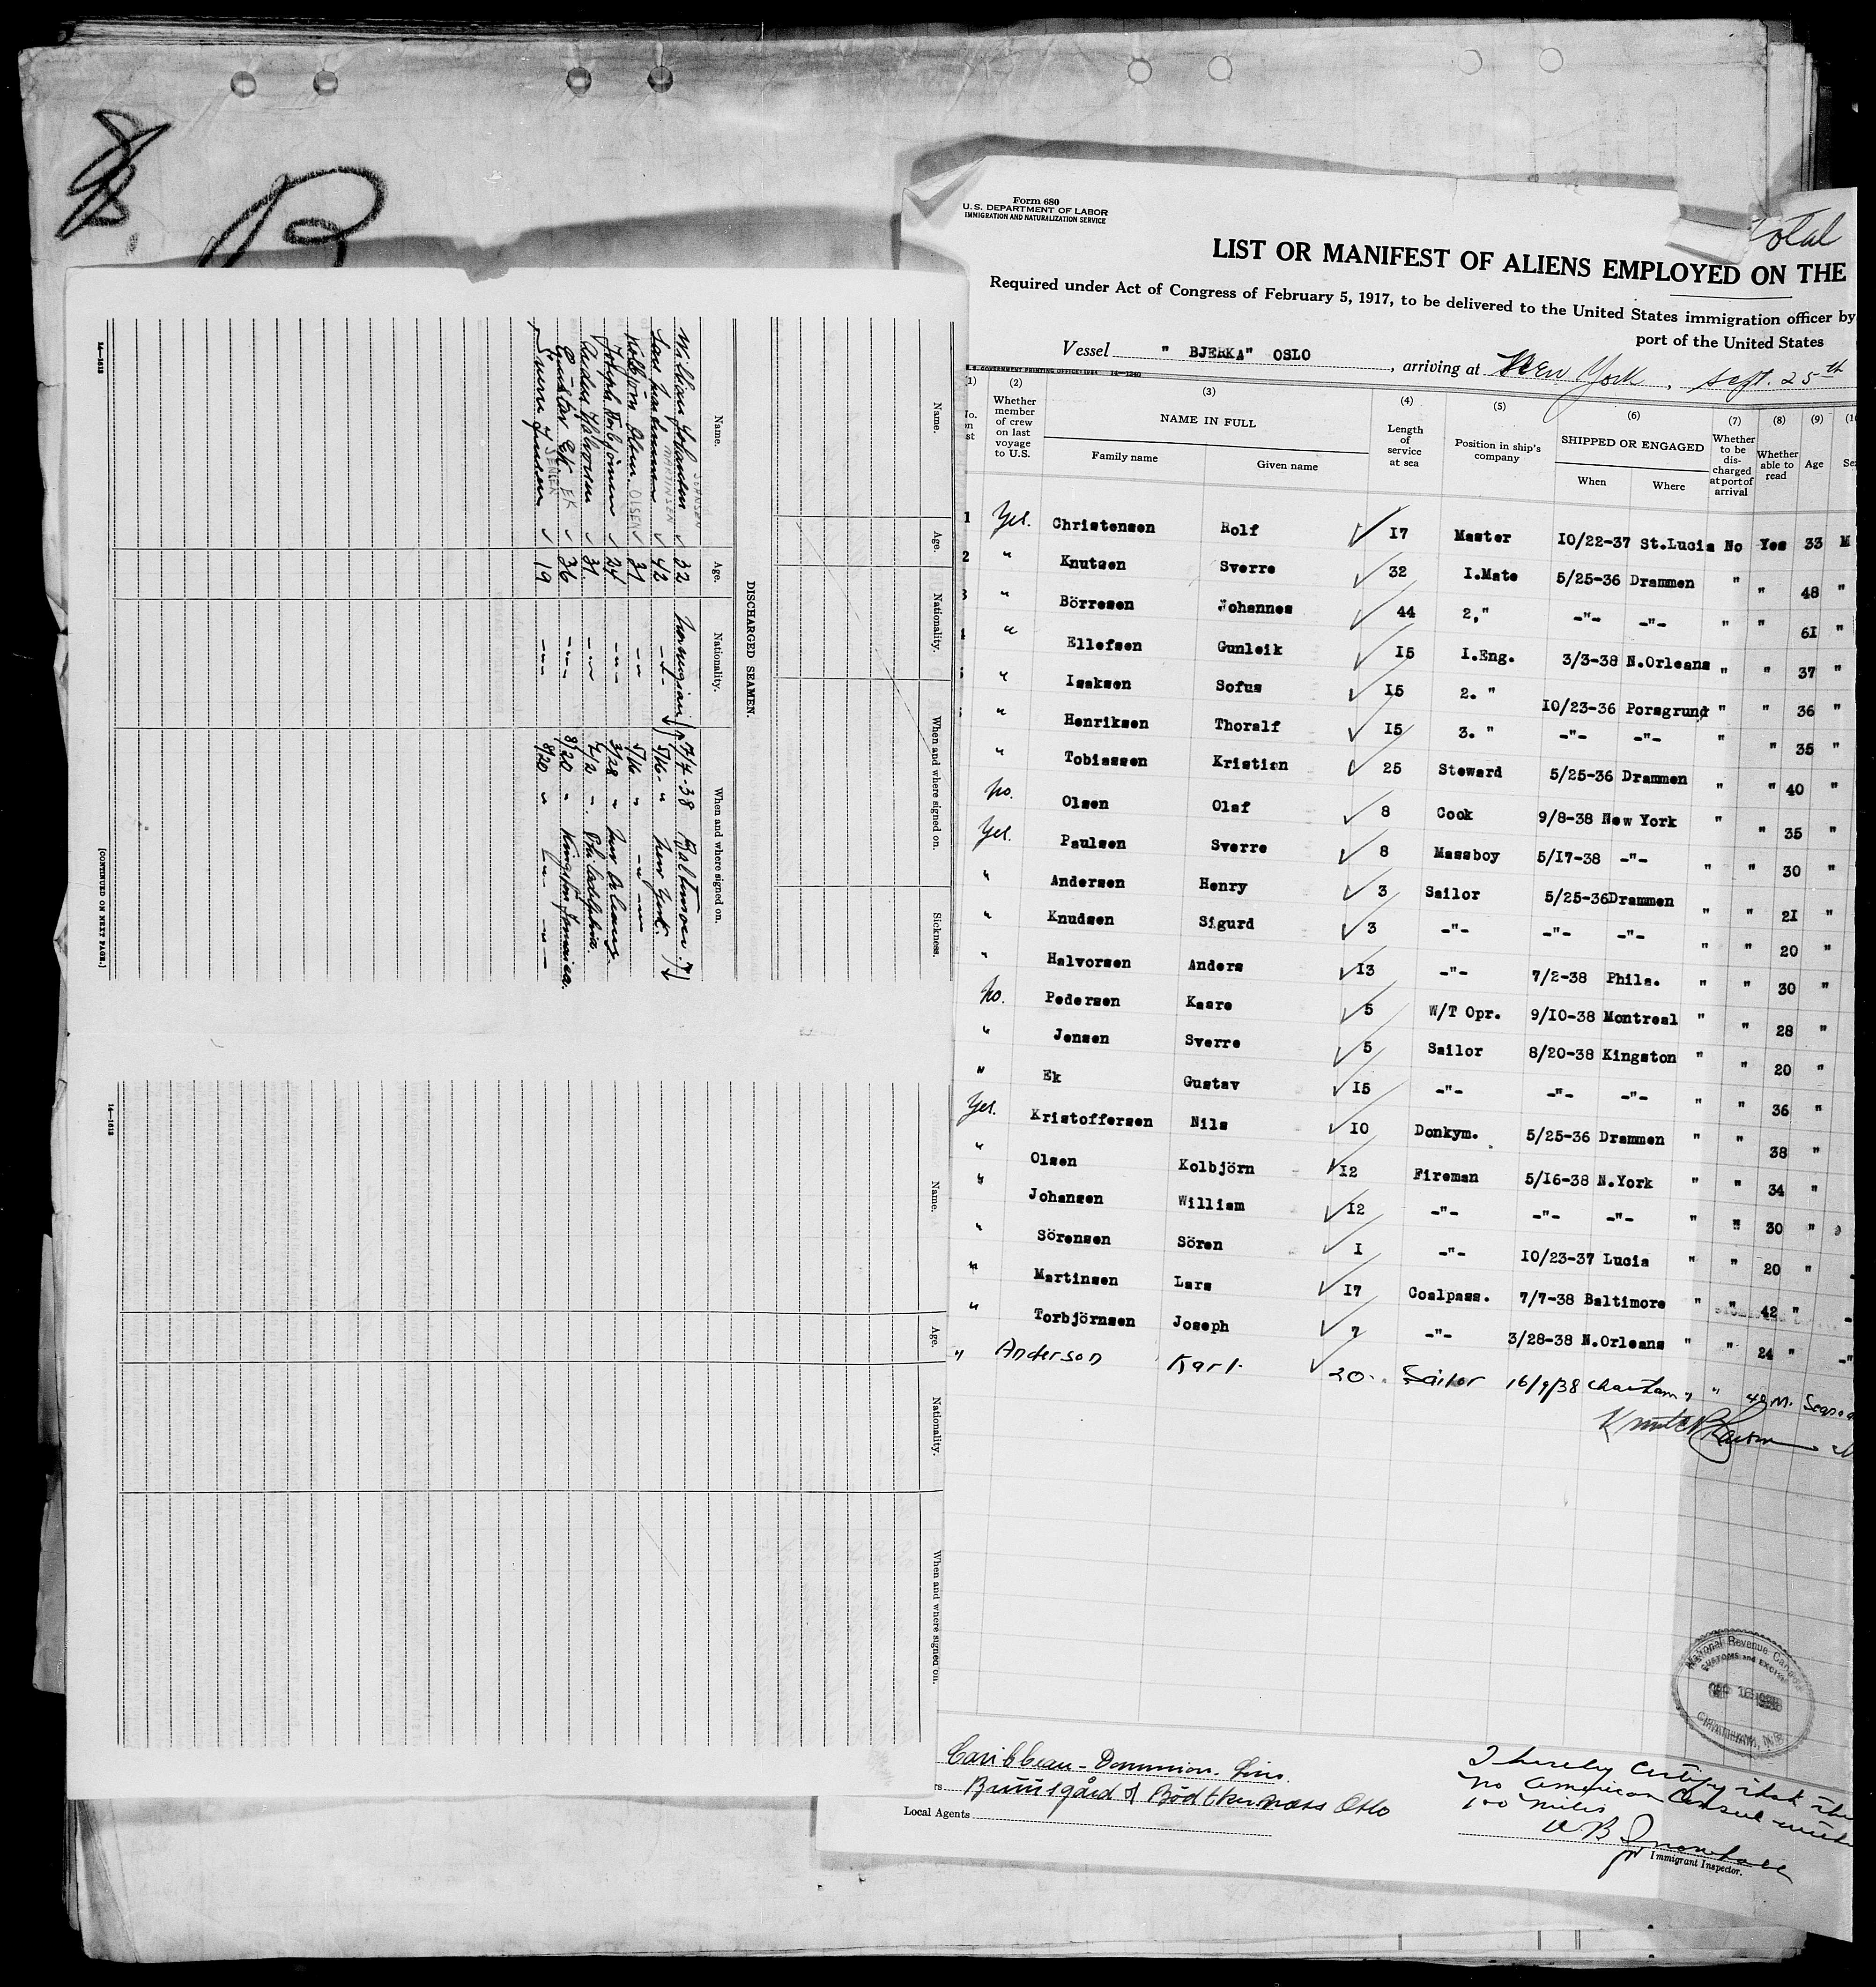 B
Form 680
U.S. DEPARTMENT OF LABOR
IMMIGRATION AND NATURALIZATION SERVICE
total
LIST OR MANIFEST OF ALIENS EMPLOYED ON THE
Required under Act of Congress of February 5, 1917, to be delivered to the United States immigration officer by
port of the United States
Vessel " BJERKA" OSLO, arriving at New York, Sept. 25th
U.S. GOVERNMENT PRINTING OFFICE: 1934 14—1240
(1) (2) (3) (4) (5) (6) (7) (8) (9) (10
Whether member of crew on last voyage to U.S.
NAME IN FULL
Family name Given name
Length of service at sea
Position in ship's company
SHIPPED OR ENGAGED
When Where
Whether to be discharged at port of arrival
Whether able to read
Age
1 Yes. Christensen Rolf 17 Master 10/22-37 St.Lucia No Yes 33 M
2 " Knutsen Sverre 32 I.Mate 5/25-36 Drammen " " 48 "
3 " Börresen Johannes 44 2," -"- -"- " " 61 "
" Ellefsen Gunleik 15 I.Eng. 3/3-38 N.Orleans " " 37 "
" Isaksen Sofus 15 2. " 10/23-36 Porsgrund " " 36 "
" Henriksen Thoralf 15 3. " -"- -"- " " 35 "
" Tobiassen Kristian 25 Steward 5/25-36 Drammen " " 40 "
No. Olsen Olaf 8 Cook 9/8-38 New York " " 35 "
Yes. Paulsen Sverre 8 Messboy 5/17-38 -"- " " 30 "
" Andersen Henry 3 Sailor 5/25-36 Drammen " " 21 "
" Knudsen Sigurd 3 -"- -"- -"- " " 20 "
" Halvorsen Anders 13 -"- 7/2-38 Phila. " " 30 "
No. Pedersen Kaare 5 W/T Opr. 9/10-38 Montreal " " 28 "
" Jensen Sverre 5 Sailor 8/20-38 Kingston " " 20 "
" Ek Gustav 15 -"- -"- -"- " " 36 "
Yes. Kristoffersen Nils 10 Donkym. 5/25-36 Drammen " " 38 "
" Olsen Kolbjörn 12 Fireman 5/16-38 N.York " " 34 "
" Johansen William 12 -"- -"- -"- " " 30 "
" Sörensen Sören 1 -"- 10/23-37 Lucia " " 20 "
" Martinsen Lars 17 Coalpass. 7/7-38 Baltimore " " 42 "
" Torbjörnsen Joseph 7 -"- 3/28-38 N.Orleans " " 24 "
" Anderson Karl 20 Sailor 16/9/38 Chatham " " 49 M.
National Revenue Canada
CUSTOMS and EXCISE
CHATHAM, N.B.
Caribbean-Dominion Line
Local Agents
I hereby certify that the
no American Consul within
100 miles
Immigrant Inspector.
Name. Age. Nationality. When and where signed on. Sickness.
DISCHARGED SEAMEN.
Name. Age. Nationality. When and where signed on.
William Johansen JOHNSEN 32 Norwegian 7/7-38 Baltimore
Lars Martinsen MARTINSEN 42 -"- 5/16- " New York.
Kolbjörn Olsen OLSEN 31 -"- 5/16 " -"-
Joseph Torbjörnsen 24 -"- 3/28 " New Orleans
Anders Halvorsen 31 -"- 7/2 " Philadelphia.
Gustav Ek EK 36 -"- 8/20 " Kingston Jamaica.
Sverre Jensen JENSEN 19 -"- 8/20 " -"-
14—1612
[CONTINUED ON NEXT PAGE.]
Name. Age. Nationality. When and where signed on.
14—1612